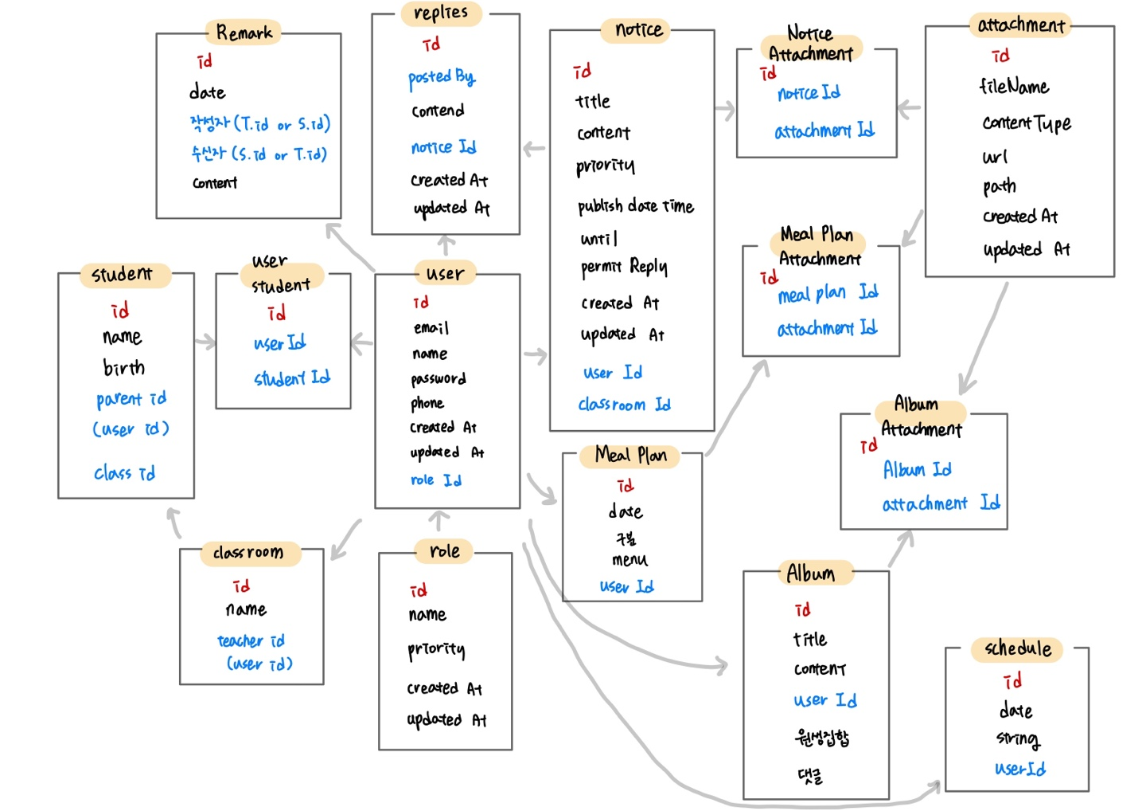 Remark
id
date
작성자 (T.id or S.id)
수신자 (S.id or T.id)
content
replies
id
posted By
contend
notice Id
created At
updated At
notice
id
title
content
priority
publish date time
until
permit Reply
created At
updated At
user Id
classroom Id
Notice
Attachment
id
notice Id
attachment Id
attachment
id
fileName
content Type
url
path
created At
updated At
Meal Plan
Attachment
id
meal plan Id
attachment Id
student
id
name
birth
parent id
(user id)
class id
user
student
id
user Id
student Id
user
id
email
name
password
phone
created At
updated At
role Id
Album
Attachment
id
Album Id
attachment Id
Meal Plan
id
date
구분
menu
user Id
classroom
id
name
teacher id
(user id)
role
id
name
priority
created At
updated At
Album
id
title
content
user Id
원생집합
댓글
schedule
id
date
string
userId